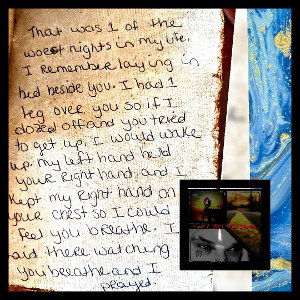 That was 1 of the
worst nights in my life.
I remember laying in
bed beside you. I had 1
leg over you so if I
dozed off and you tried
to get up, I would wake
up. my left hand held
your Right hand, and I
kept my Right hand on
your chest so I could
feel you breathe. I
laid there watching
you breathe and I
prayed.